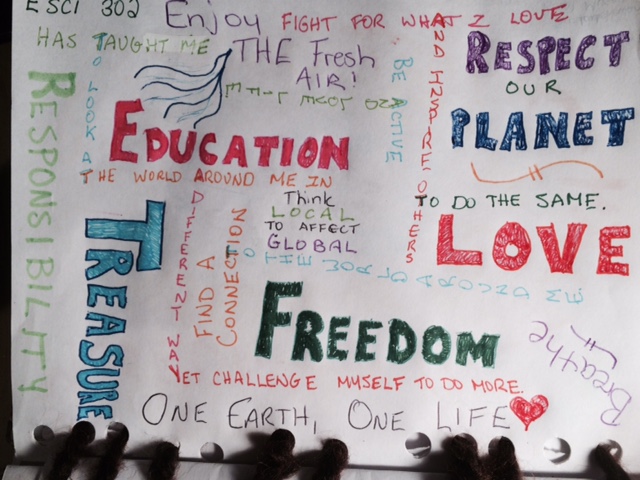 ESCI 302
HAS TAUGHT ME
TO LOOK AT
THE WORLD AROUND ME IN
DIFFERENT WAY
YET CHALLENGE MYSELF TO DO MORE.
Enjoy
THE Fresh
AIR!
FIGHT FOR WHAT I LOVE
AND INSPIRE OTHERS
TO DO THE SAME.
RESPECT
OUR
PLANET
BE ACTIVE
RESPONSIBILITY
EDUCATION
TREASURE
Think
LOCAL
TO AFFECT
GLOBAL
FIND A
CONNECTION
TO THE WORLD AROUND ME
LOVE
FREEDOM
Breathe
ONE EARTH, ONE LIFE